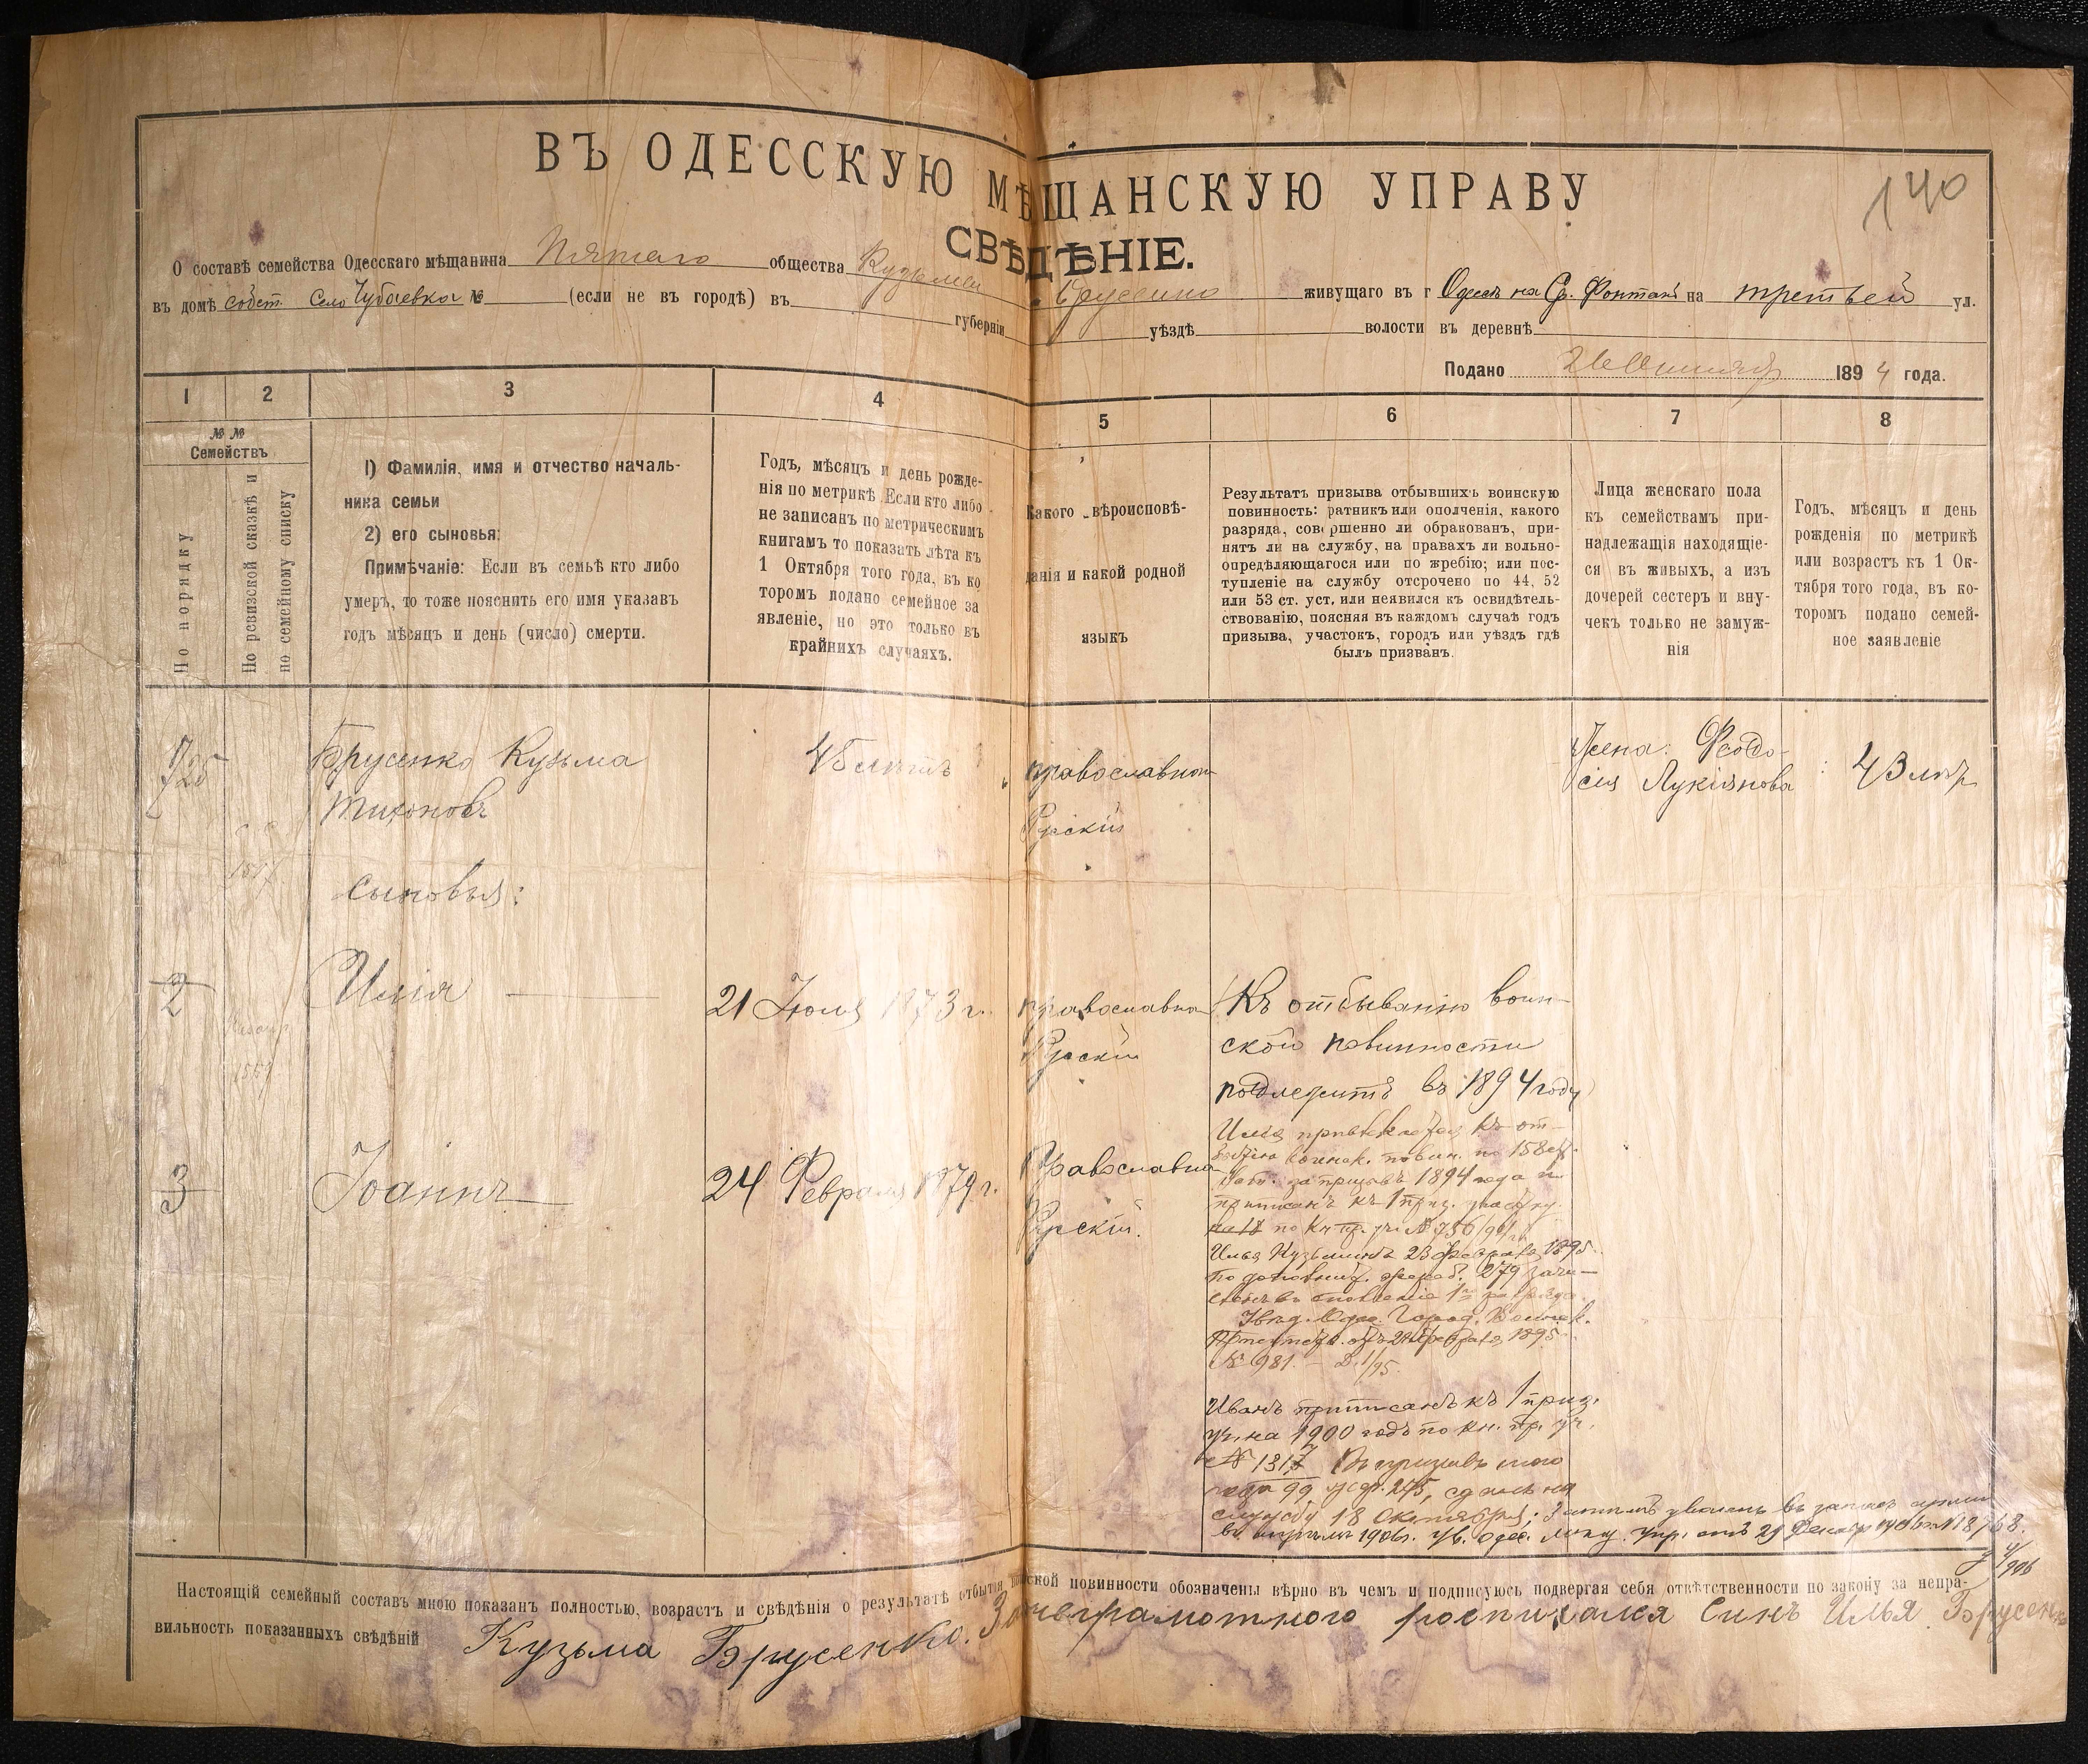 ВЪ ОДЕССКУЮ МѢЩАНСКУЮ УПРАВУ
140
СВѢДѢНІЕ.
О составѣ семейства Одесскаго мѣщанина Пятаго общества Кузьмы Брусенко живущаго въ г Одессѣ на Ср. Фонтанѣ на третьей ул.
въ домѣ собст. Село Чубаевка № (если не въ городѣ) въ губерніи уѣздѣ волости въ деревнѣ
Подано 1894 года.
1 2 3 4 5 6 7 8
№ №
Семействъ
По порядку
По ревизской сказкѣ и
по семейному списку
1) Фамилія, имя и отчество началь-
ника семьи
2) его сыновья:
Примѣчаніе: Если въ семьѣ кто либо
умеръ, то тоже пояснить его имя указавъ
годъ мѣсяцъ и день (число) смерти.
Годъ, мѣсяцъ и день рожде-
нія по метрикѣ Если кто либо
не записанъ по метрическимъ
книгамъ то показать лѣта къ
1 Октября того года, въ ко
торомъ подано семейное за
явленіе, но это только въ
крайнихъ случаяхъ.
Какого вѣроисповѣ-
данія и какой родной
языкъ
Результатъ призыва отбывшихъ воинскую
повинность: ратникъ или ополченія, какого
разряда, совершенно ли обракованъ, при-
нятъ ли на службу, на правахъ ли вольно-
опредѣляющагося или по жребію; или пос-
тупленіе на службу отсрочено по 44, 52
или 53 ст. уст. или неявился къ освидѣтель-
ствованію, поясняя въ каждомъ случаѣ годъ
призыва, участокъ, городъ или уѣздъ гдѣ
былъ призванъ.
Лица женскаго пола
къ семействамъ при-
надлежащія находящіе-
ся въ живыхъ, а изъ
дочерей сестеръ и вну-
чекъ только не замуж-
нія
Годъ, мѣсяцъ и день
рожденія по метрикѣ
или возрастъ къ 1 Ок-
тября того года, въ ко-
торомъ подано семей-
ное заявленіе
725
Брусенко Кузьма
Тихоновъ
45 лѣтъ
православной
Русскій
Жена: Феодо-
сія Лукіянова
43 лѣт
1517
сыновья:
2
Илія
21 Іюля 1873 г.
православна
Русскій
Къ отбыванію воин-
ской повинности
подлежитъ въ 1894 году
3
Іоаннъ
24 Февраля 1879 г.
Православна
Русскій.
Илья привлекается къ от-
бытію воинск. повин. по 158 ст.
за призывъ 1894 года и
приписанъ къ 1 приз. участку
по кн. пр. уч. № 756
Илья Кузьминъ 23 Февраля 1895
по дополнит. жереб. 279 зачи-
сленъ въ ополченіе 1го разряда.
Увѣд. Одес. Город. Воинск.
Присутств. отъ 24 Февраля 1895
№ 981. Д. 1/95.
Иванъ приписанъ къ 1 приз.
уч. на 1900 годъ по кн. пр. уч.
№ 1317 Въ призывъ того
года 99 жер. 245, сданъ на
службу 18 Октября; Затѣмъ уволенъ въ запасъ арміи
Настоящій семейный составъ мною показанъ полностью, возрастъ и свѣдѣнія о результатѣ отбытія воинской повинности обозначены вѣрно въ чемъ и подписуюсь подвергая себя отвѣтственности по закону за непра-
вильность показанныхъ свѣдѣній Кузьма Брусенко. За неграмотного росписался Синъ Илья Брусенко